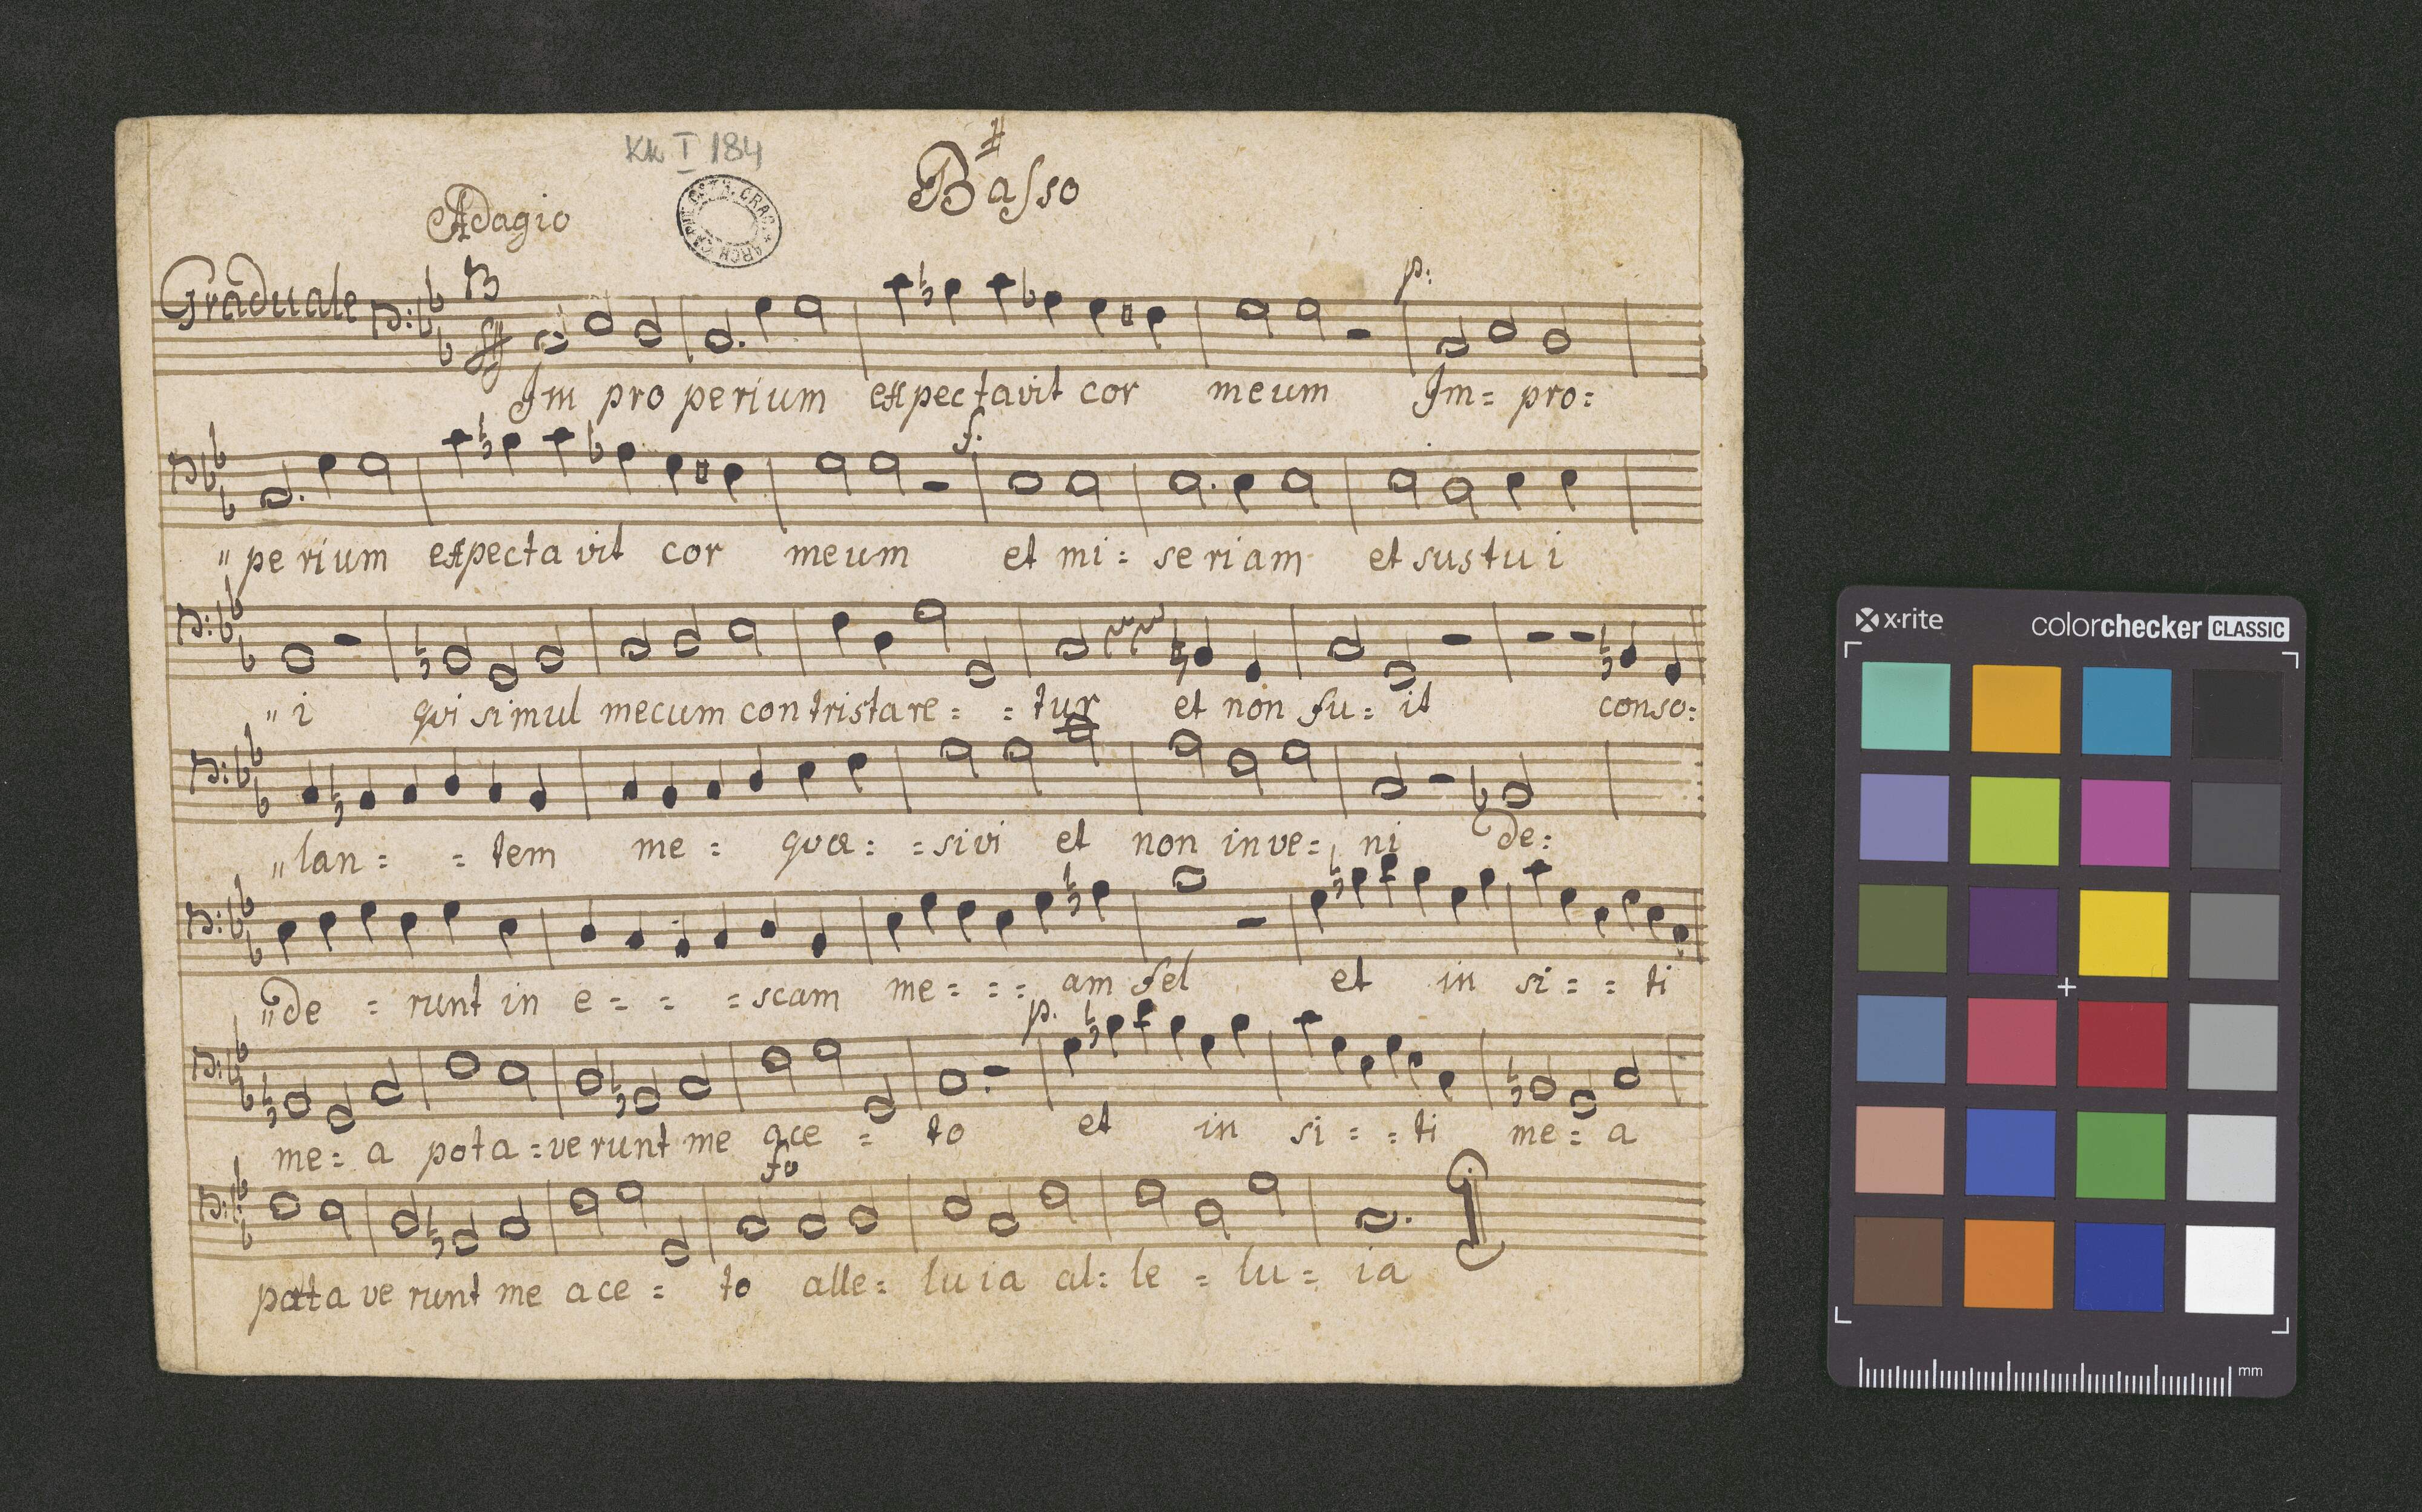 Kk I 184
Basso
Adagio
Graduale
p:
Im pro perium expectavit cor meum Im= pro=
f.
" pe rium expecta vit cor meum et mi= se riam et sustu i
" i qui simul mecum contristare= = tur et non fu= it conso:
" lan= = tem me= quæ= = sivi et non inve= ni de:
" de = runt in e= = = scam me= = = am fel et in si= = ti
p.
me= a pota= verunt me ace = to et in si= = ti me= a
fo
potta ve runt me ace= to alle= lu ia al= le = lu= ia
x-rite
colorchecker CLASSIC
mm